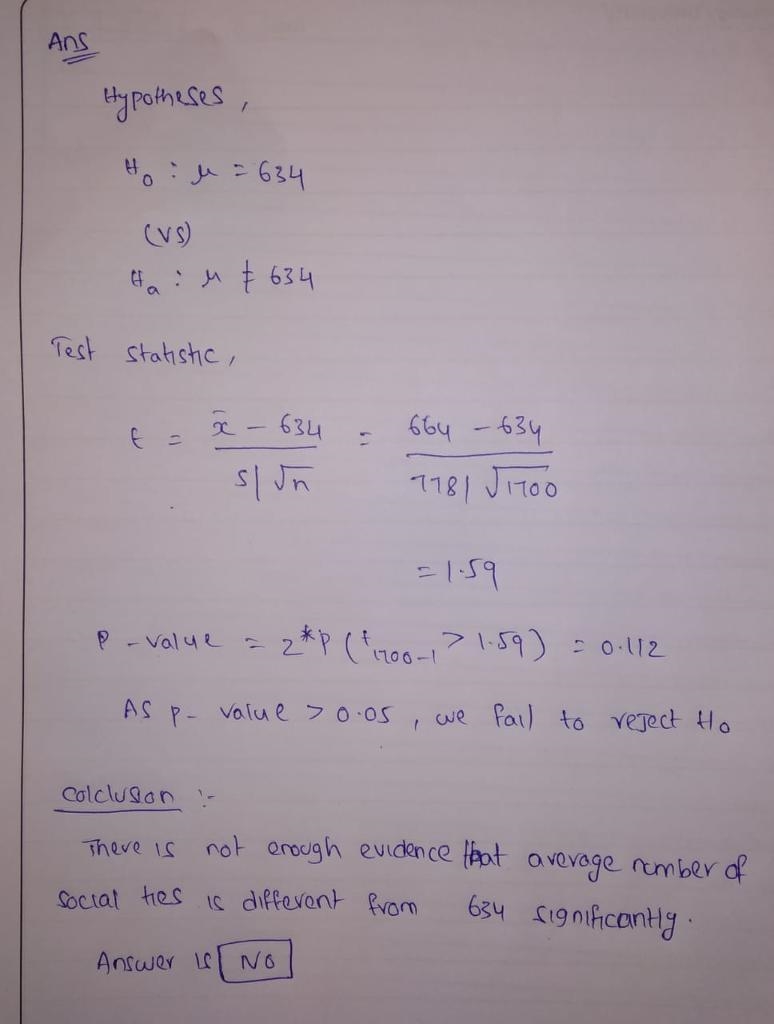 Ans
Hypotheses,
H₀ : μ = 634
(VS)
Hₐ : μ ≠ 634
Test statistic,
t = x̄ - 634 / s/√n = 664 - 634 / 778/√1700
= 1.59
P-value = 2*P (t₁₇₀₀₋₁ > 1.59) = 0.112
As p-value > 0.05, we fail to reject H₀
Colclusion :-
There is not enough evidence that average number of
social ties is different from 634 significantly.
Answer is NO